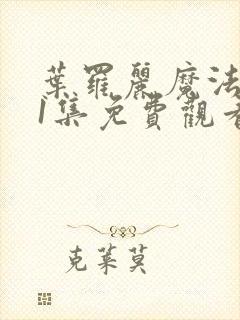 葉羅麗魔法
1集免費觀看
克萊莫